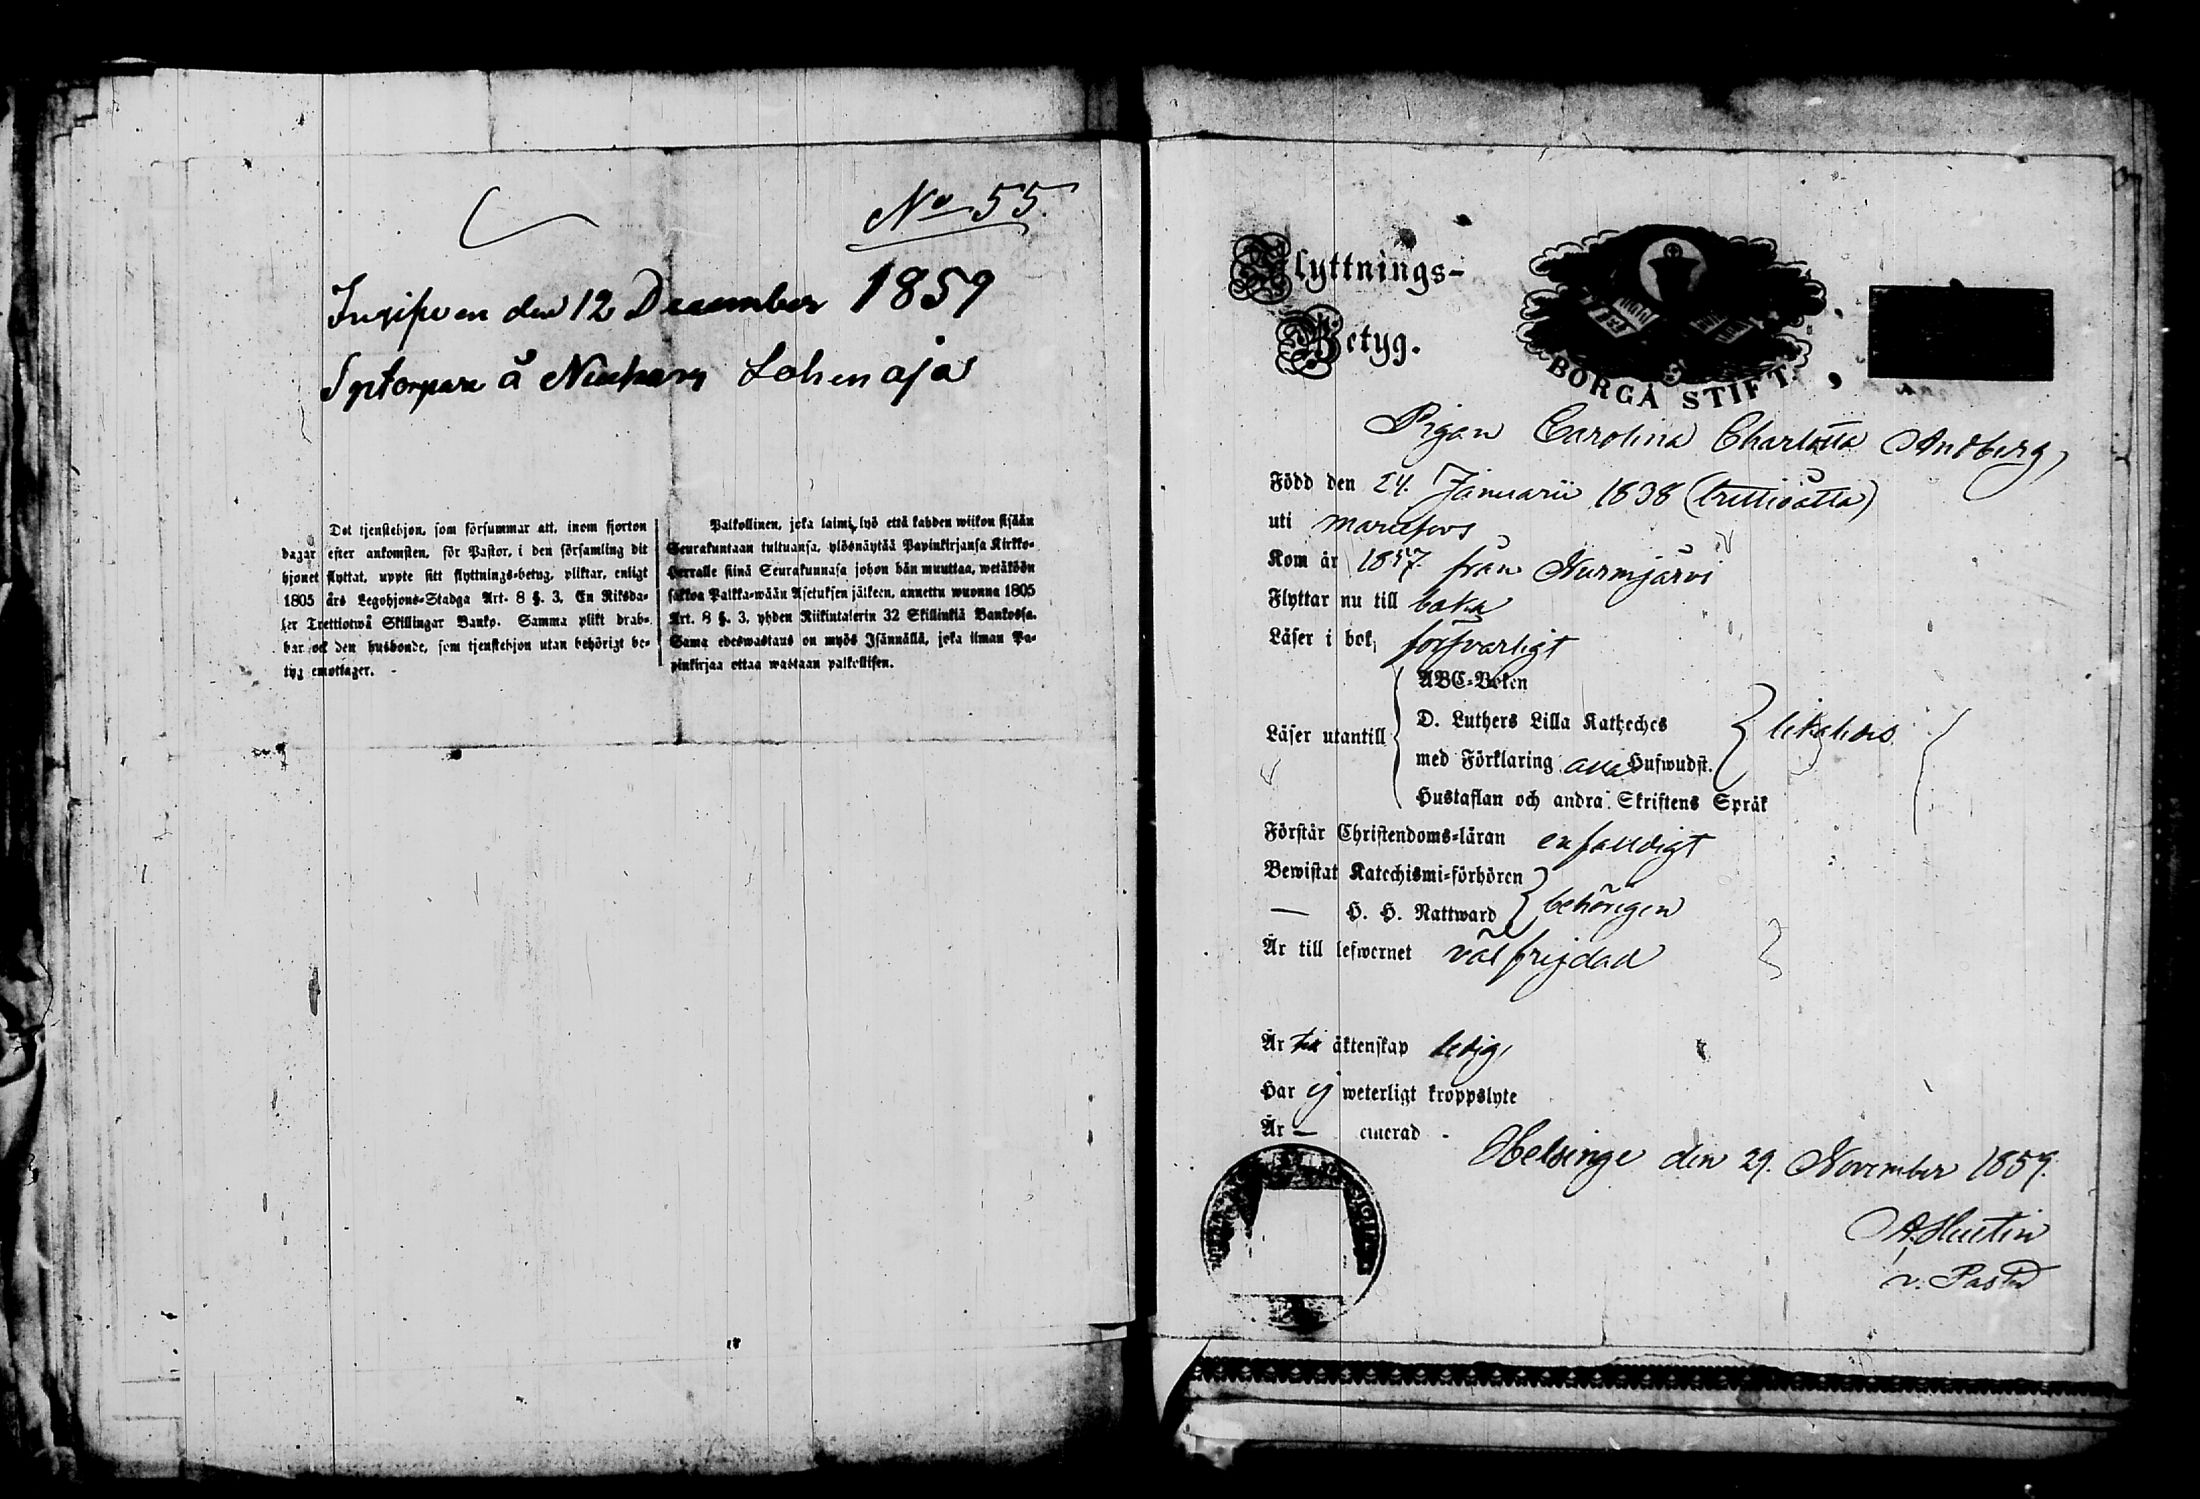 No 55.
Ingifven den 12 December 1859
å Lohenoja
Det tjenstehjon, som försummar att, inom fjorton
dagar efter ankomsten, för Pastor, i den församling dit
hjonet flyttat, uppte sitt flyttnings-betyg, pliktar, enligt
1805 års Legohjons-Stadga Art. 8 §. 3, En Riksda-
ler Trettiotwå Skillingar Banko. Samma plikt drab-
bar ock den husbonde, som tjenstehjon utan behörigt be-
tyg emottager.
Palkollinen, joka laimi lyö että kahden wiikon sisään
Seurakuntaan tultuansa, ylösnäytää Papinkirjansa Kirkko-
Herralle siinä Seurakunnasa johon hän muuttaa, wetäköön
sakkoa Palkka-wään Asetuksen jälkeen, annettu wuonna 1805
Art. 8 §. 3, yhden Riikintalerin 32 Skillinkiä Bankossa.
Sama edeswastaus on myös Isännällä, joka ilman Pa-
pinkirjaa ottaa wastaan palkollisen.
Flyttnings-
Betyg.
BORGÅ STIFT.
Pigan Carolina Charlotta Andberg,
Född den 24. Januarii 1838 (trettioåtta)
uti Mariefors
Kom år 1857. från Nurmijärvi
Flyttar nu till baka
Läser i bok, försvarligt
ABC-Boken
D. Luthers Lilla Katheches
Läser utantill
med Förklaring alla Hufwudst.
likaledes
Hustaflan och andra Skriftens Språk
Förstår Christendoms-läran enfaldigt
Bewistat Katechismi-förhören
— H. H. Nattward behörigen
Är till lefwernet välfrejdad
Är till äktenskap ledig,
Har ej weterligt kroppslyte
Är —
Helsinge den 29. November 1859.
v. Pastor